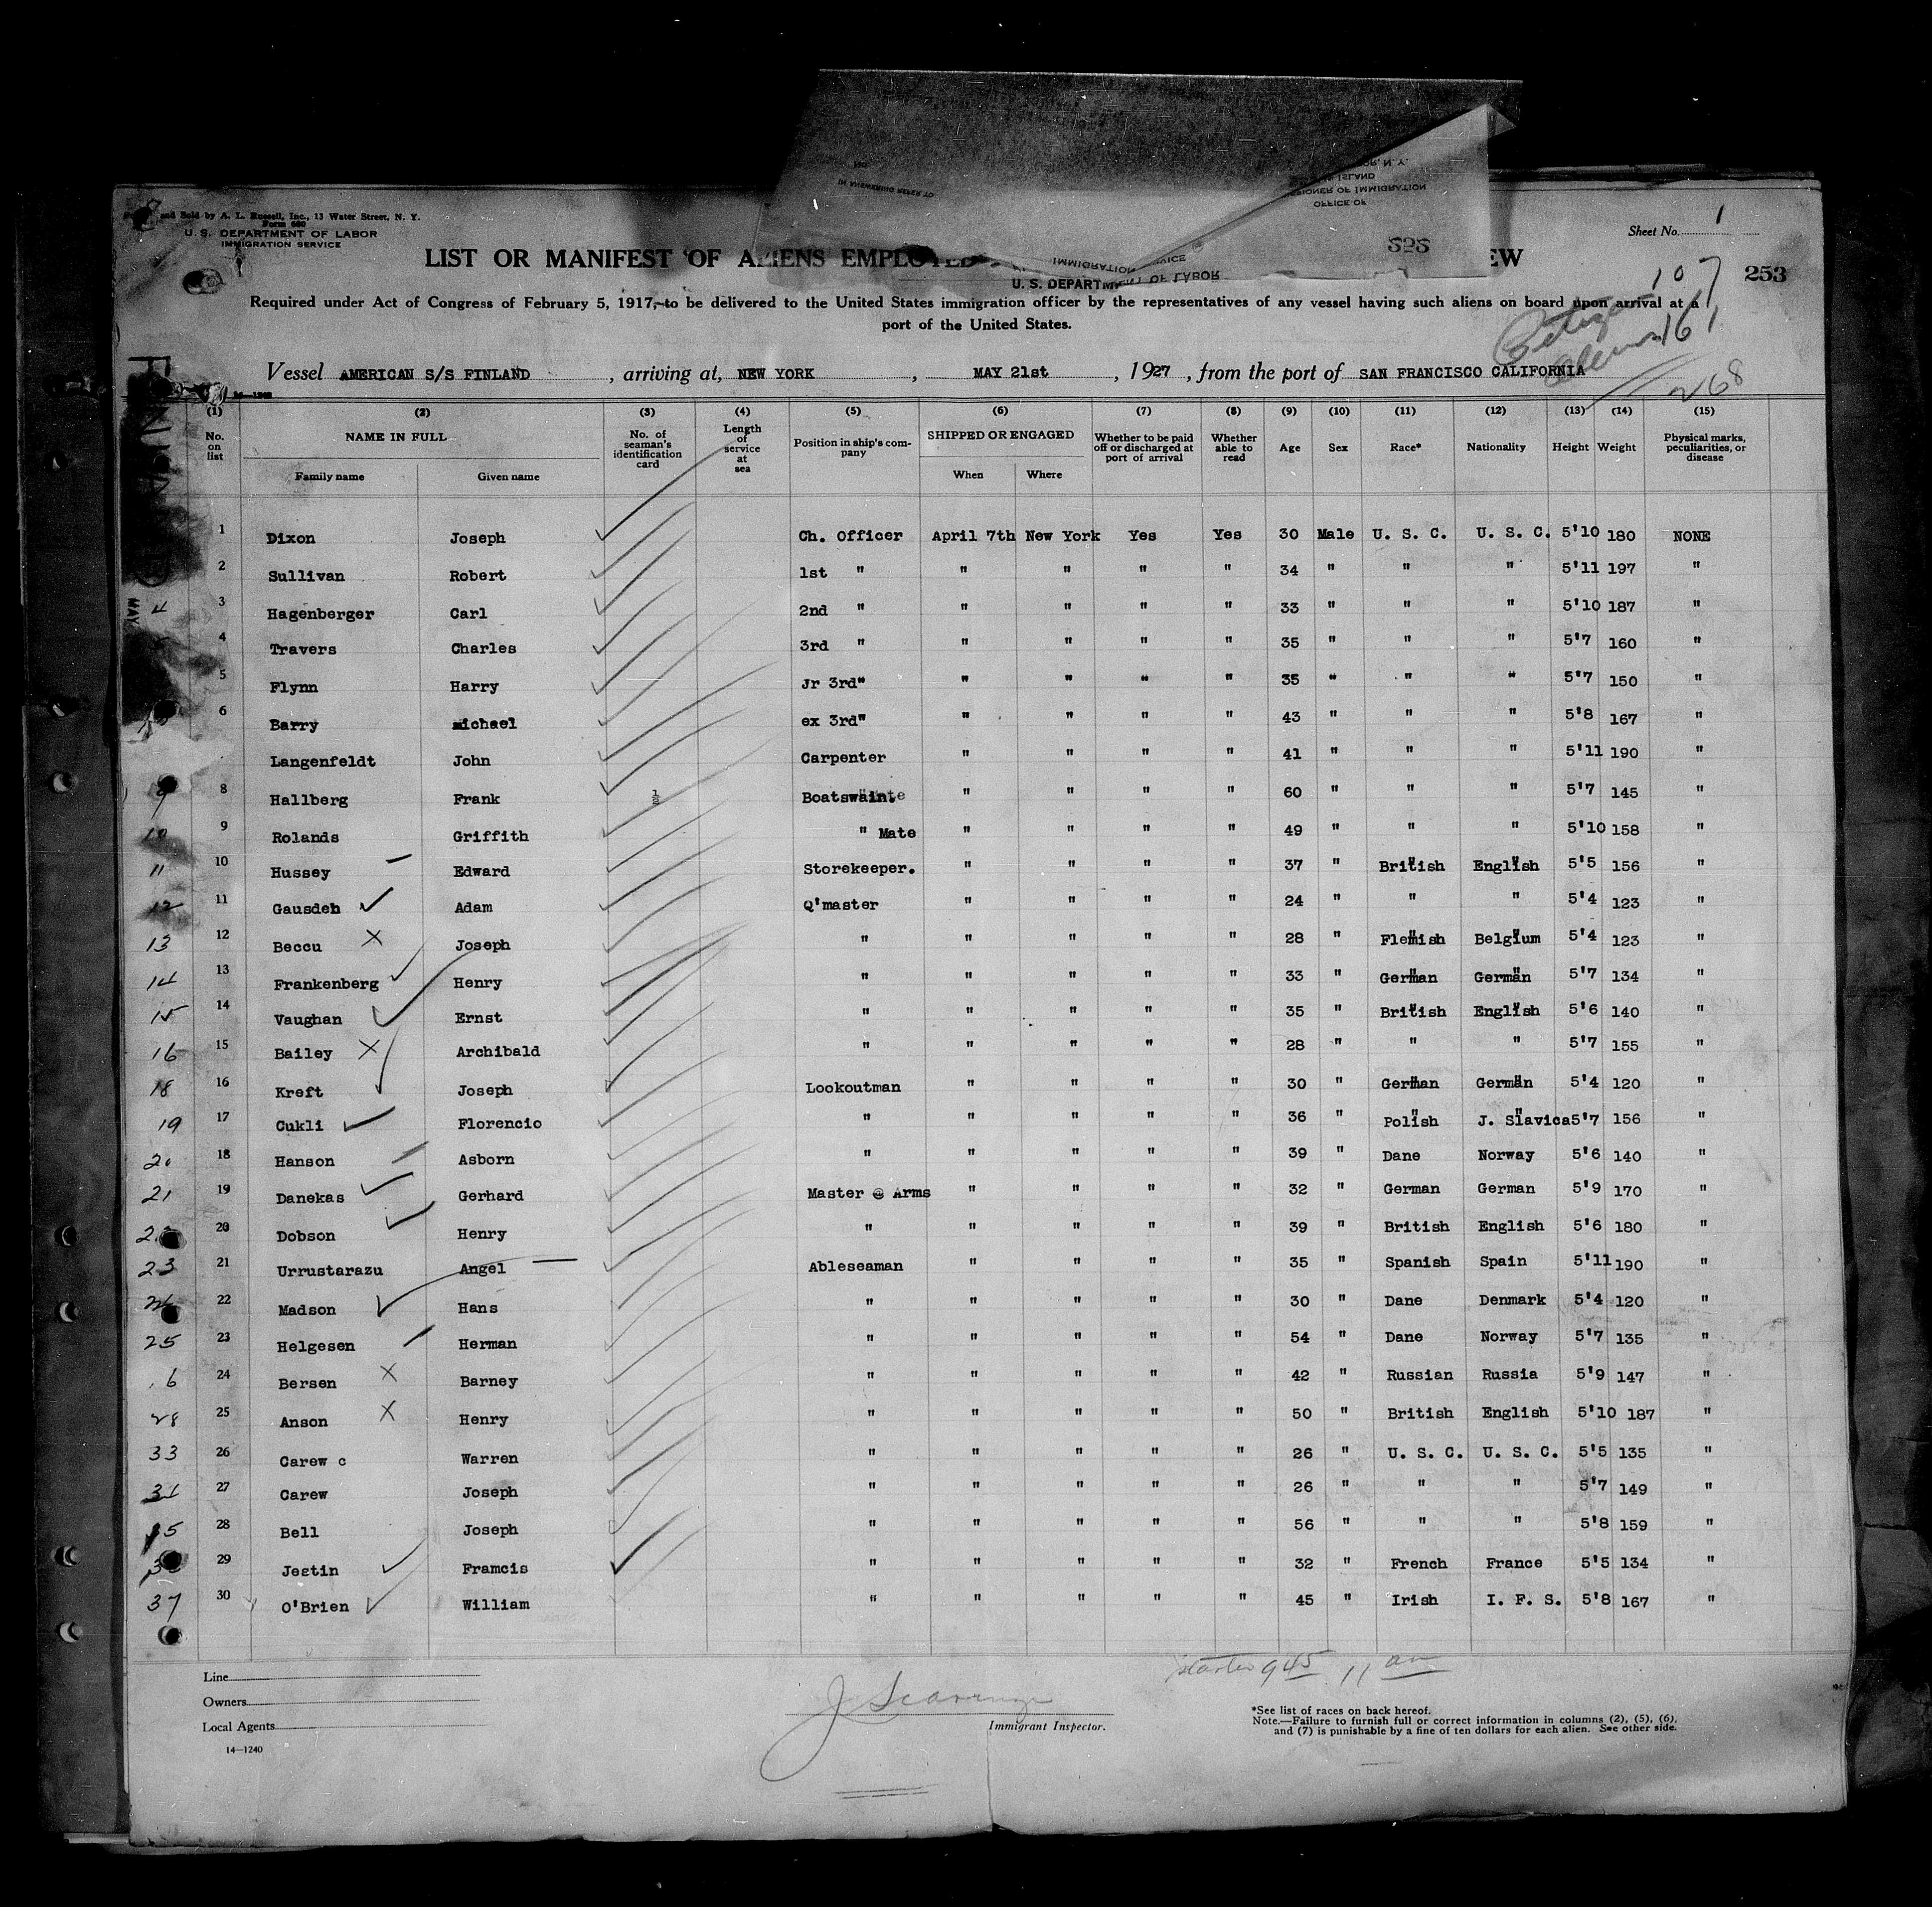 and Sold by A. L. Russell, Inc., 13 Water Street, N. Y.
Form 680
U. S. DEPARTMENT OF LABOR
IMMIGRATION SERVICE
No
IN ANSWERING REFER TO
OR, N. Y.
ISLAND
SIONER OF IMMIGRATION
OFFICE OF
Sheet No. 1
LIST OR MANIFEST OF ALIENS EMPLOYED EW
IMMIGRATION SERVICE
U. S. DEPARTMENT OF LABOR
253
107
161
268
Required under Act of Congress of February 5, 1917, to be delivered to the United States immigration officer by the representatives of any vessel having such aliens on board upon arrival at a
port of the United States.
Vessel AMERICAN S/S FINLAND, arriving at, NEW YORK, MAY 21st, 1927, from the port of SAN FRANCISCO CALIFORNIA
14-1240
(1) (2) (3) (4) (5) (6) (7) (8) (9) (10) (11) (12) (13) (14) (15)
No. on list
NAME IN FULL
Family name Given name
No. of seaman's identification card
Length of service at sea
Position in ship's company
SHIPPED OR ENGAGED
When Where
Whether to be paid off or discharged at port of arrival
Whether able to read
Age Sex Race* Nationality Height Weight
Physical marks, peculiarities, or disease
1 Dixon Joseph Ch. Officer April 7th New York Yes Yes 30 Male U. S. C. U. S. C. 5'10 180 NONE
2 Sullivan Robert 1st " " " " " 34 " " " 5'11 197 "
4 3 Hagenberger Carl 2nd " " " " " 33 " " " 5'10 187 "
4 Travers Charles 3rd " " " " " 35 " " " 5'7 160 "
5 Flynn Harry Jr 3rd" " " " " 35 " " " 5'7 150 "
6 Barry michael ex 3rd" " " " " 43 " " " 5'8 167 "
Langenfeldt John Carpenter " " " " 41 " " " 5'11 190 "
9 8 Hallberg Frank Boatswain. " " " " 60 " " " 5'7 145 "
10 9 Rolands Griffith " Mate " " " " 49 " " " 5'10 158 "
11 10 Hussey Edward Storekeeper. " " " " 37 " British English 5'5 156 "
12 11 Gausdeh Adam Q'master " " " " 24 " " " 5'4 123 "
13 12 Beccu X Joseph " " " " " 28 " Flemish Belgium 5'4 123 "
14 13 Frankenberg Henry " " " " " 33 " German German 5'7 134 "
15 14 Vaughan Ernst " " " " " 35 " British English 5'6 140 "
16 15 Bailey X Archibald " " " " " 28 " " " 5'7 155 "
18 16 Kreft Joseph Lookoutman " " " " 30 " German German 5'4 120 "
19 17 Cukli Florencio " " " " " 36 " Polish J. Slavica 5'7 156 "
20 18 Hanson Asborn " " " " " 39 " Dane Norway 5'6 140 "
21 19 Danekas Gerhard Master @ Arms " " " " 32 " German German 5'9 170 "
20 Dobson Henry " " " " " 39 " British English 5'6 180 "
23 21 Urrustarazu Angel Ableseaman " " " " 35 " Spanish Spain 5'11 190 "
22 Madson Hans " " " " " 30 " Dane Denmark 5'4 120 "
25 23 Helgesen Herman " " " " " 54 " Dane Norway 5'7 135 "
6 24 Bersen X Barney " " " " " 42 " Russian Russia 5'9 147 "
28 25 Anson X Henry " " " " " 50 " British English 5'10 187 "
33 26 Carew c Warren " " " " " 26 " U. S. C. U. S. C. 5'5 135 "
31 27 Carew Joseph " " " " " 26 " " " 5'7 149 "
28 Bell Joseph " " " " " 56 " " " 5'8 159 "
29 Jestin Framcis " " " " " 32 " French France 5'5 134 "
37 30 O'Brien William " " " " " 45 " Irish I. F. S. 5'8 167 "
started 945 11 am
Line
Owners
Local Agents
14—1240
Immigrant Inspector.
*See list of races on back hereof.
Note.—Failure to furnish full or correct information in columns (2), (5), (6),
and (7) is punishable by a fine of ten dollars for each alien. See other side.